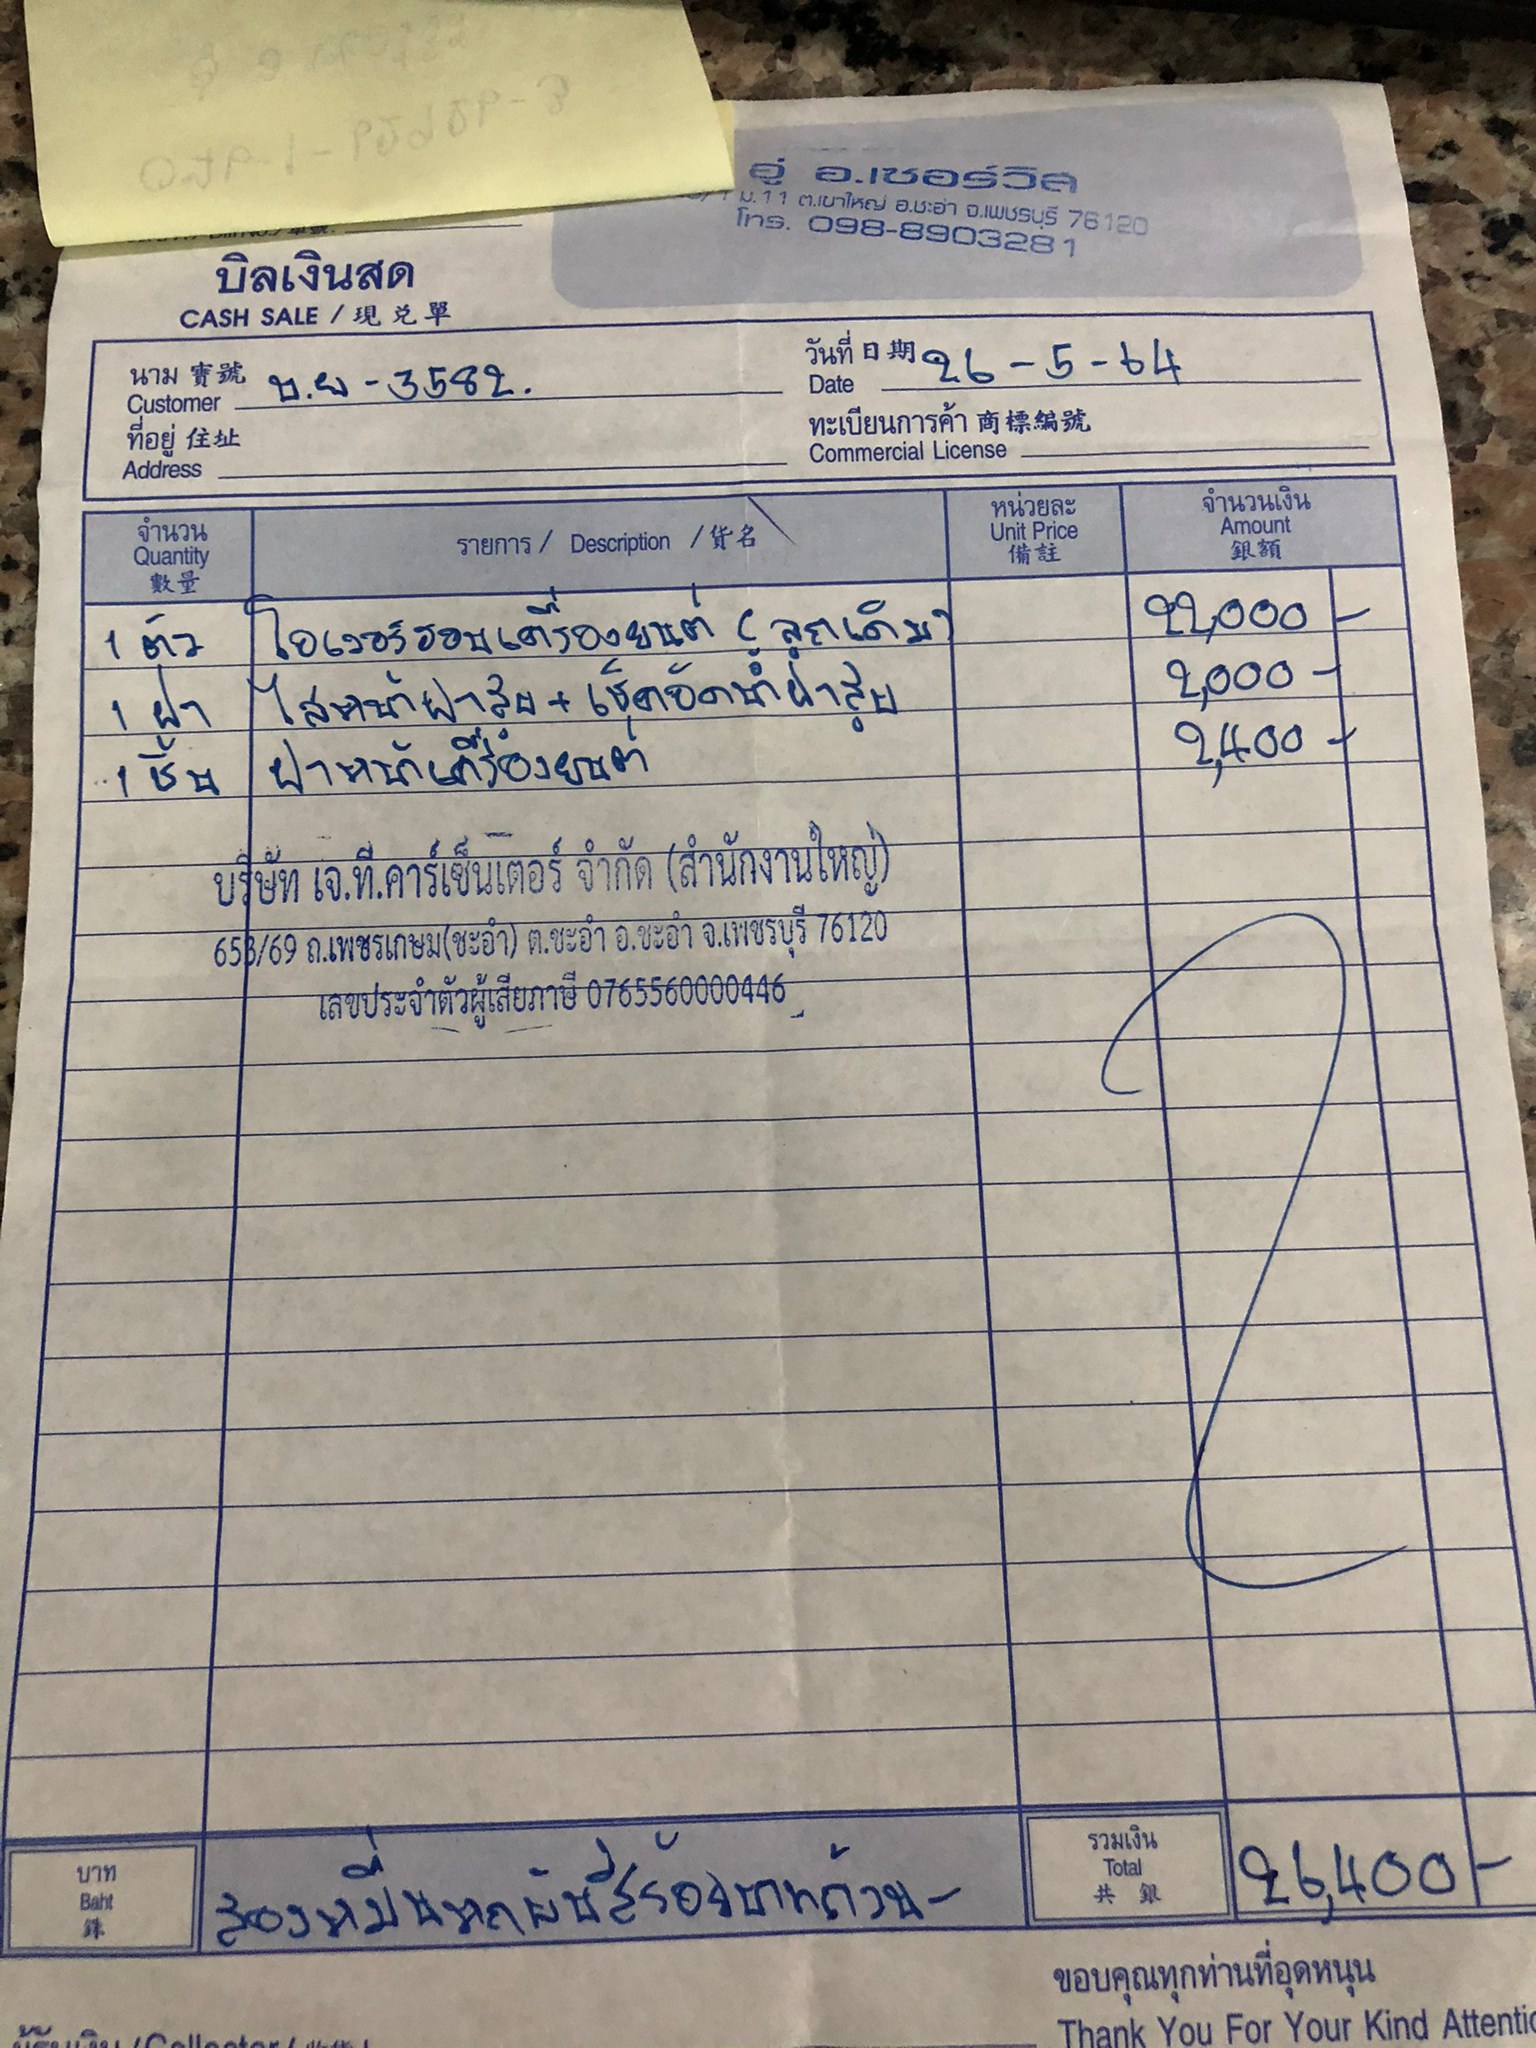 อู่ อ.เซอร์วิส
ม.11 ต.เขาใหญ่ อ.ชะอำ จ.เพชรบุรี 76120
โทร. 098-8903281
บิลเงินสด
CASH SALE / 現兌單
นาม 寶號
Customer บ.ย - 3582.
วันที่ 日期
Date 26 - 5 - 64
ที่อยู่ 住址
Address
ทะเบียนการค้า 商標編號
Commercial License
จำนวน
Quantity
數量
รายการ / Description / 貨名
หน่วยละ
Unit Price
備註
จำนวนเงิน
Amount
銀額
1 ตัว โอเวอร์ฮอนเครื่องยนต์ (ลูกเดิม) 22,000 -
1 ฝา ไสหน้าฝาสูบ + เช็คอัดน้ำฝาสูบ 2,000 -
1 ชิ้น ฝาหน้าเครื่องยนต์ 2,400 -
บริษัท เจ.ที.คาร์เซ็นเตอร์ จำกัด (สำนักงานใหญ่)
653/69 ถ.เพชรเกษม(ชะอำ) ต.ชะอำ อ.ชะอำ จ.เพชรบุรี 76120
เลขประจำตัวผู้เสียภาษี 0765560000446
บาท
Baht
銖
สองหมื่นหกพันสี่ร้อยบาทถ้วน -
รวมเงิน
Total
共銀
26,400 -
ขอบคุณทุกท่านที่อุดหนุน
Thank You For Your Kind Attentio
ผู้รับเงิน / Collector /